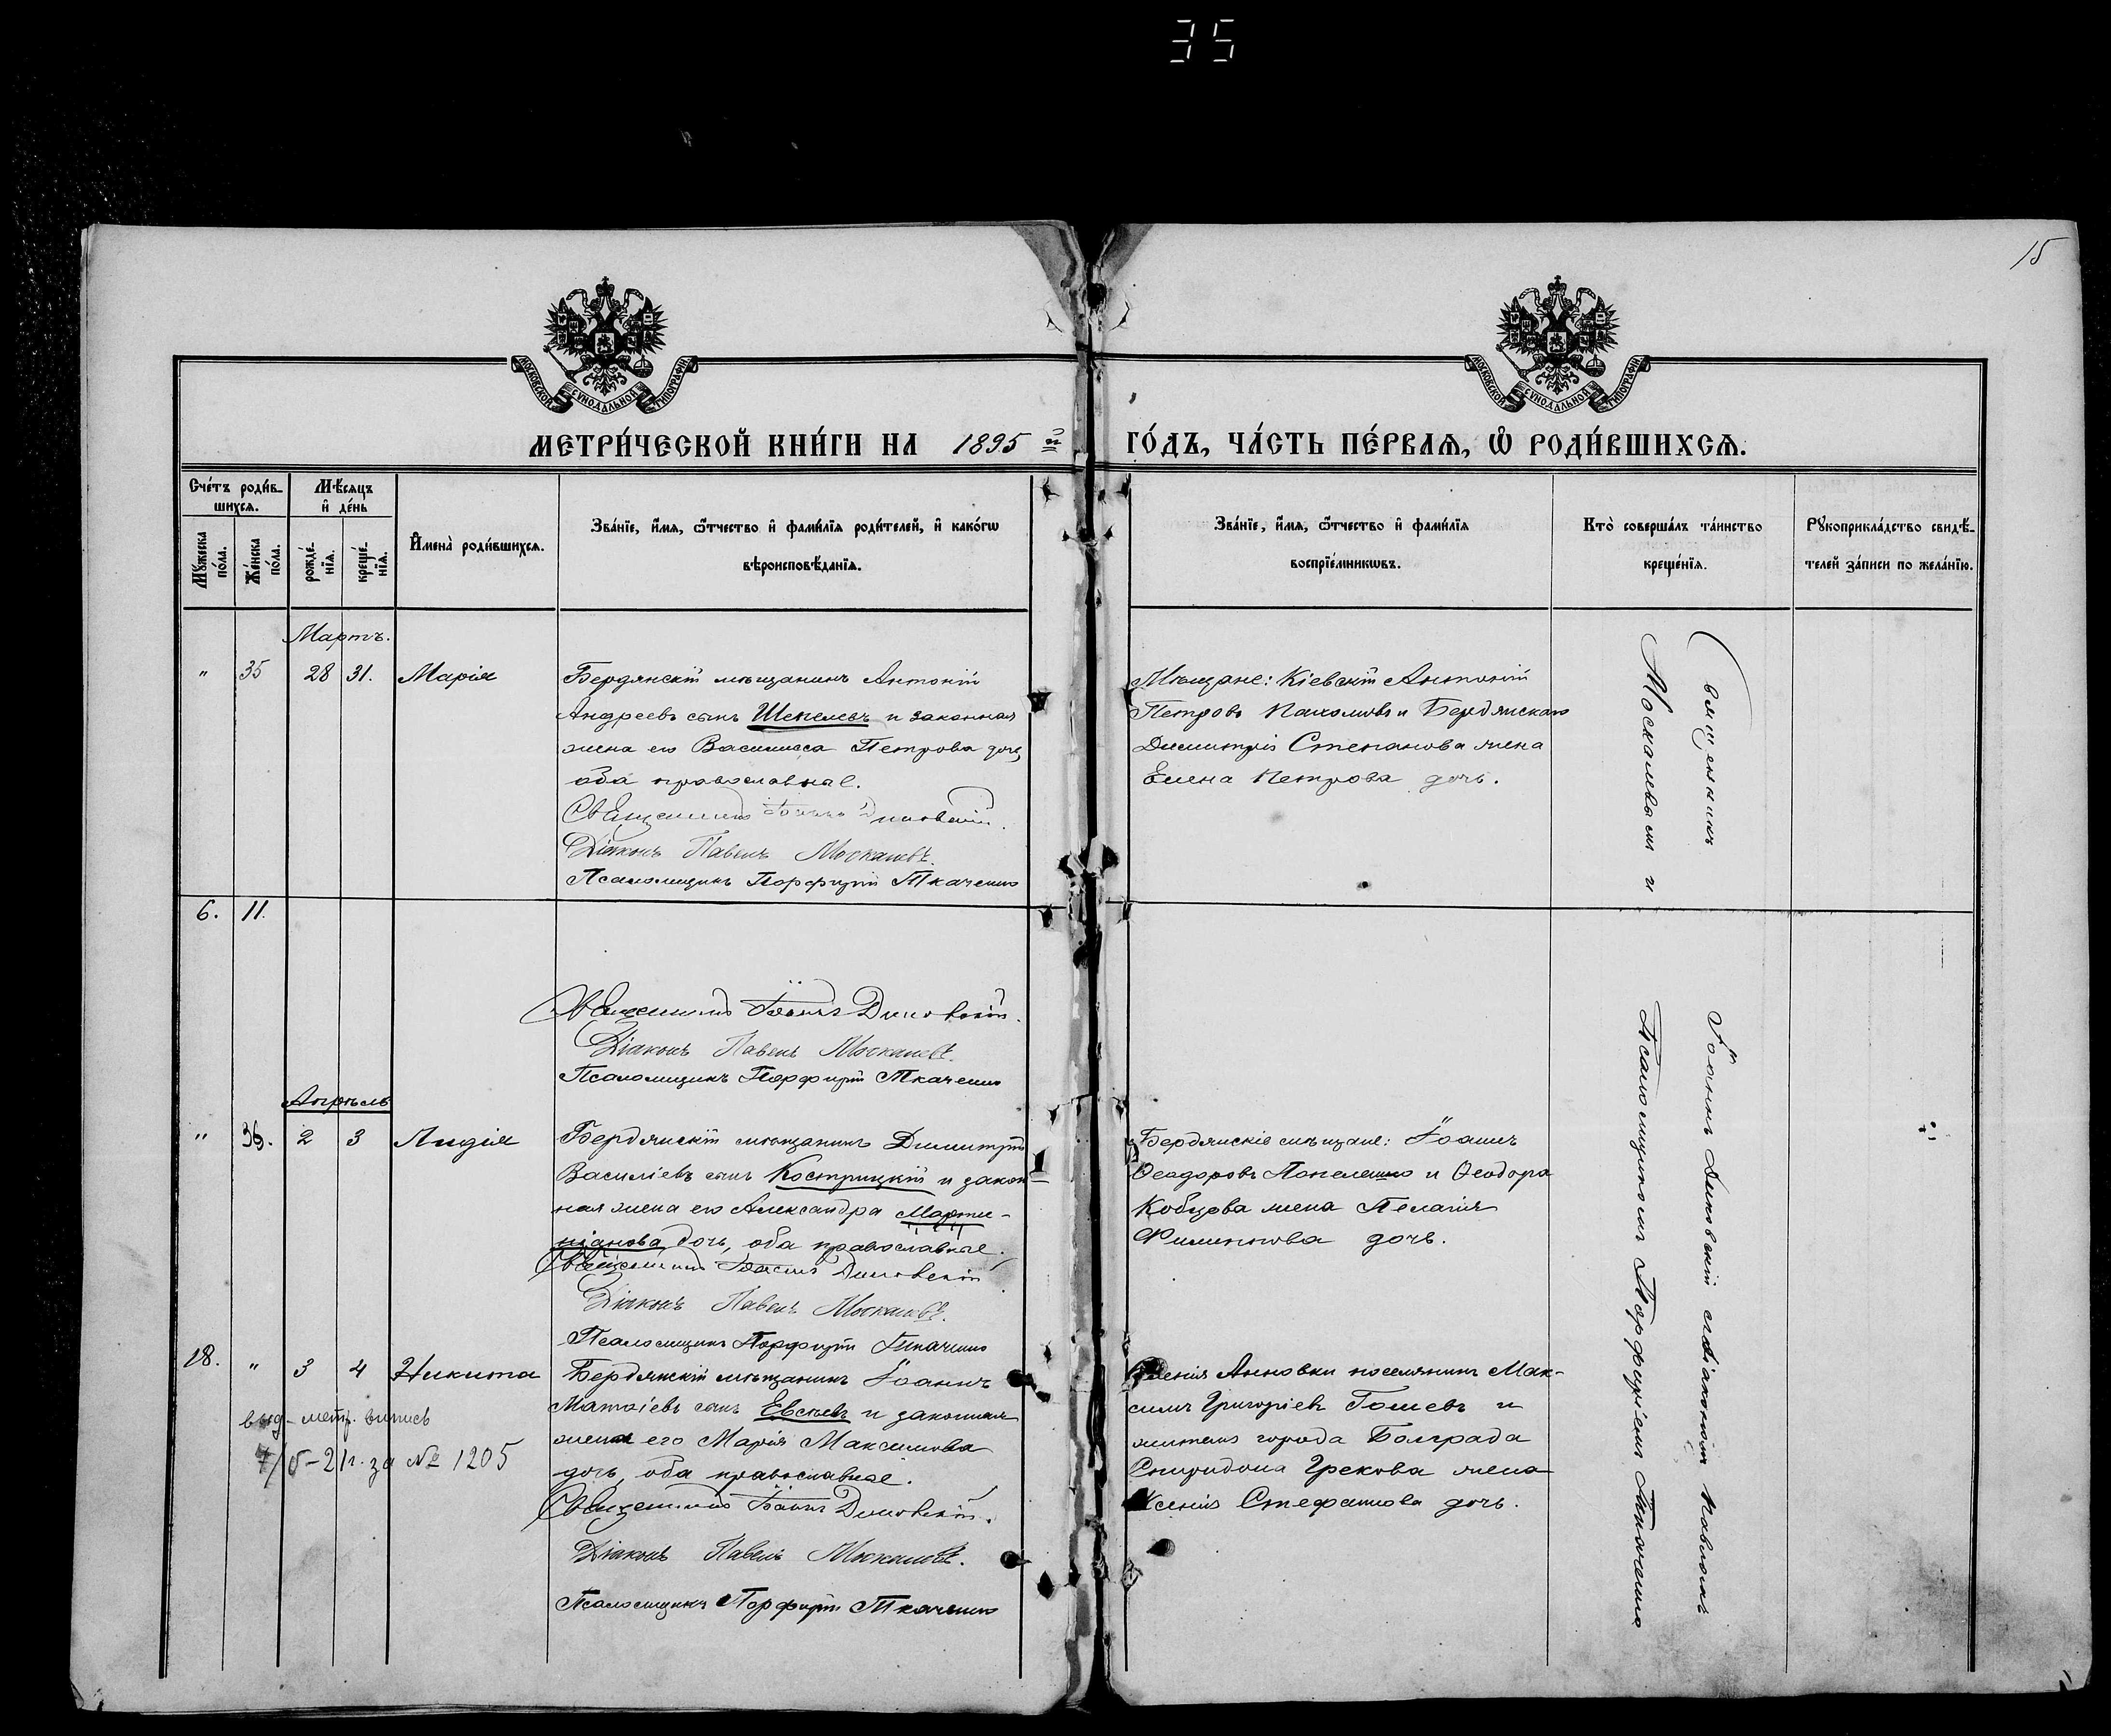 35
15
МОСКОВСКОЙ СѴНОДАЛЬНОЙ ТИПОГРАФІИ
МОСКОВСКОЙ СѴНОДАЛЬНОЙ ТИПОГРАФІИ
МЕТРИ́ЧЕСКОЙ КНИ́ГИ НА 1895 й ГО́ДЪ, ЧА́СТЬ ПЕ́РВАѦ, Ѡ РОДИ́ВШИХСѦ.
Сче́тъ роди́в-
шихсѧ.
Мꙋ́жеска по́ла.
Же́нска по́ла.
Мѣ́сѧцъ
и҆ де́нь
рожде́-
нїѧ.
креще́-
нїѧ.
И҆мена̀ роди́вшихсѧ.
Зва́нїе, и҆́мѧ, ѻ҆́тчество и҆ фами́лїѧ роди́телей, и҆ како́гѡ
вѣроисповѣ́данїѧ.
Зва́нїе, и҆́мѧ, ѻ҆́тчество и҆ фами́лїѧ
воспрїе́мникѡвъ.
Кто̀ соверша́лъ та́инство
креще́нїѧ.
Рꙋкоприкла́дство свидѣ́-
телей за́писи по жела́нїю.
Мартъ.
" 35 28 31. Марія
Бердянскій мѣщанинъ Антоній
Андреевъ сынъ Шепелевъ и законная
жена его Василисса Петрова дочь,
оба православные.
Священникъ Іоаннъ Диковскій.
Діаконъ Павелъ Москалевъ.
Псаломщикъ Порфирій Ткаченко
Мѣщане: Кіевскій Антоній
Петровъ Пахомовъ и Бердянскаго
Димитрія Степанова жена
Елена Петрова дочь.
6. 11.
Священникъ Іоаннъ Диковскій.
Діаконъ Павелъ Москалевъ.
Псаломщикъ Порфирій Ткаченко
Апрѣль
" 36. 2 3 Лидія
Бердянскій мѣщанинъ Димитрій
Василіевъ сынъ Кострицкій и закон
ная жена его Александра Марти-
ніанова дочь, оба православные.
Священникъ Іоаннъ Диковскій
Діаконъ Павелъ Москалевъ.
Псаломщикъ Порфирій Ткаченко
Бердянскіе мѣщане: Іоаннъ
Ѳеодоровъ и Ѳеодора
Кобцова жена Пелагія
Филиппова дочь.
18. " 3 4 Никита
выд- метр. выпись
7/5-21г. за № 1205
Бердянскій мѣщанинъ Іоаннъ
Матѳіевъ сынъ Евсѣевъ и законная
жена его Марія Максимова
дочь, оба православные.
Священникъ Іоаннъ Диковскій.
Діаконъ Павелъ Москалевъ.
Псаломщикъ Порфирій Ткаченко
Анновки поселянинъ Мак-
симъ Григоріевъ Гошевъ и
жителя города Болграда
Спиридона Грекова жена
Ксенія Стефанова дочь.
Священникъ Іоаннъ Диковскій съ діакономъ Павломъ
Москалевымъ и Псаломщикомъ Порфиріемъ Ткаченко